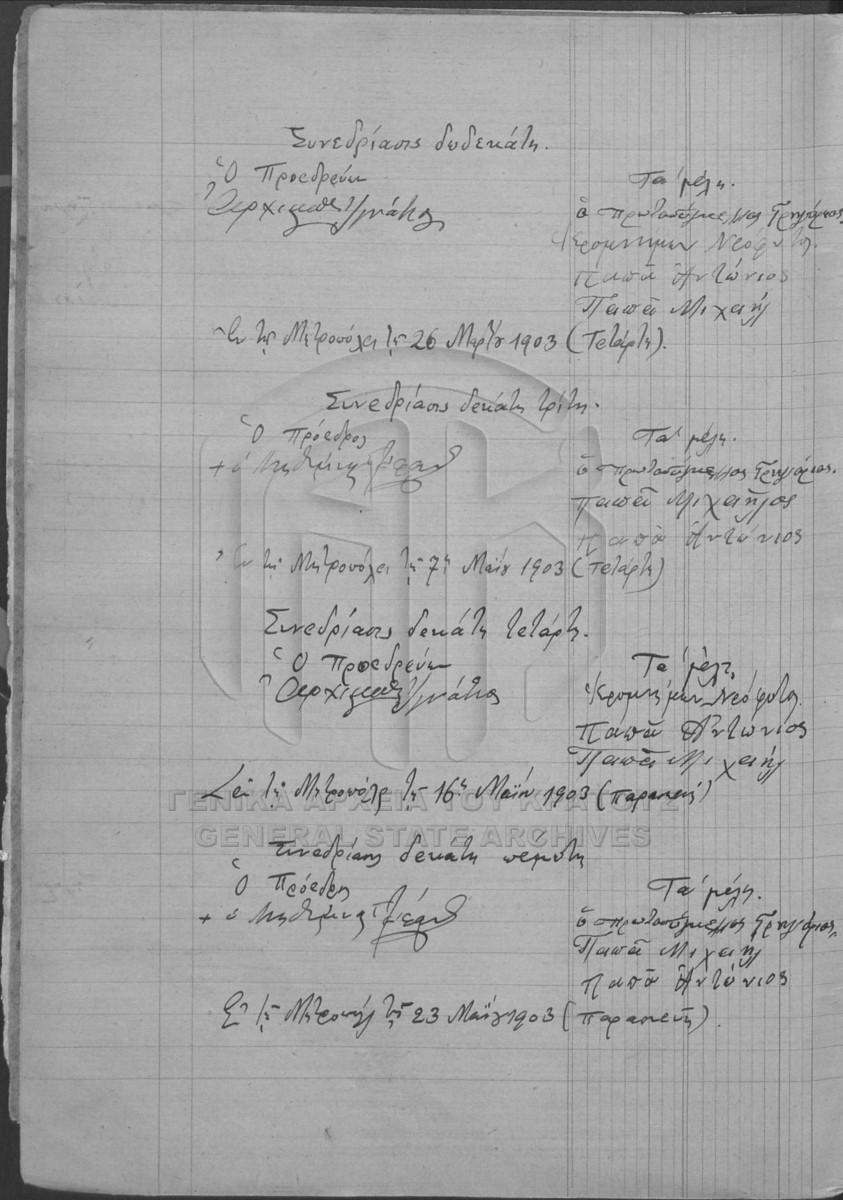 Συνεδρίασις δωδεκάτη.
Ὁ Προεδρεύων
Ἀρχιμαν. Ἰγνάτιος
Τα μέλη.
ὁ πρωτοσύγκελλος Γρηγόριος
Ἱερομνήμων Νεόφυτος.
παπᾶ Ἀντώνιος
Παπᾶ Μιχαήλ
Ἐν τῇ Μητροπόλει τῇ 26 Μαρτίου 1903 (Τετάρτη).
Συνεδρίασις δεκάτη τρίτη.
Ὁ Πρόεδρος
+ ὁ Μηθύμνης Στέφανος
Τα μέλη.
ὁ πρωτοσύγκελλος Γρηγόριος.
παπᾶ Μιχαῆλος
παπᾶ Ἀντώνιος
Ἐν τῇ Μητροπόλει τῇ 7ῃ Μαΐου 1903 (Τετάρτη)
Συνεδρίασις δεκάτη τετάρτη.
Ὁ Προεδρεύων
Ἀρχιμαν. Ἰγνάτιος
Τα μέλη
Ἱερομνήμων Νεόφυτος.
παπᾶ Ἀντώνιος
Παπᾶ Μιχαήλ
Ἐν τῇ Μητροπόλει τῇ 16ῃ Μαΐου 1903 (παρασκευή)
ΓΕΝΙΚΑ ΑΡΧΕΙΑ ΤΟΥ ΚΡΑΤΟΥΣ
GENERAL STATE ARCHIVES
Συνεδρίασις δεκάτη πέμπτη
Ὁ Πρόεδρος
+ ὁ Μηθύμνης Στέφανος
Τα μέλη.
ὁ πρωτοσύγκελλος Γρηγόριος.
Παπᾶ Μιχαήλ
παπᾶ Ἀντώνιος
Ἐν τῇ Μητροπόλει τῇ 23 Μαΐου 1903 (παρασκευή).